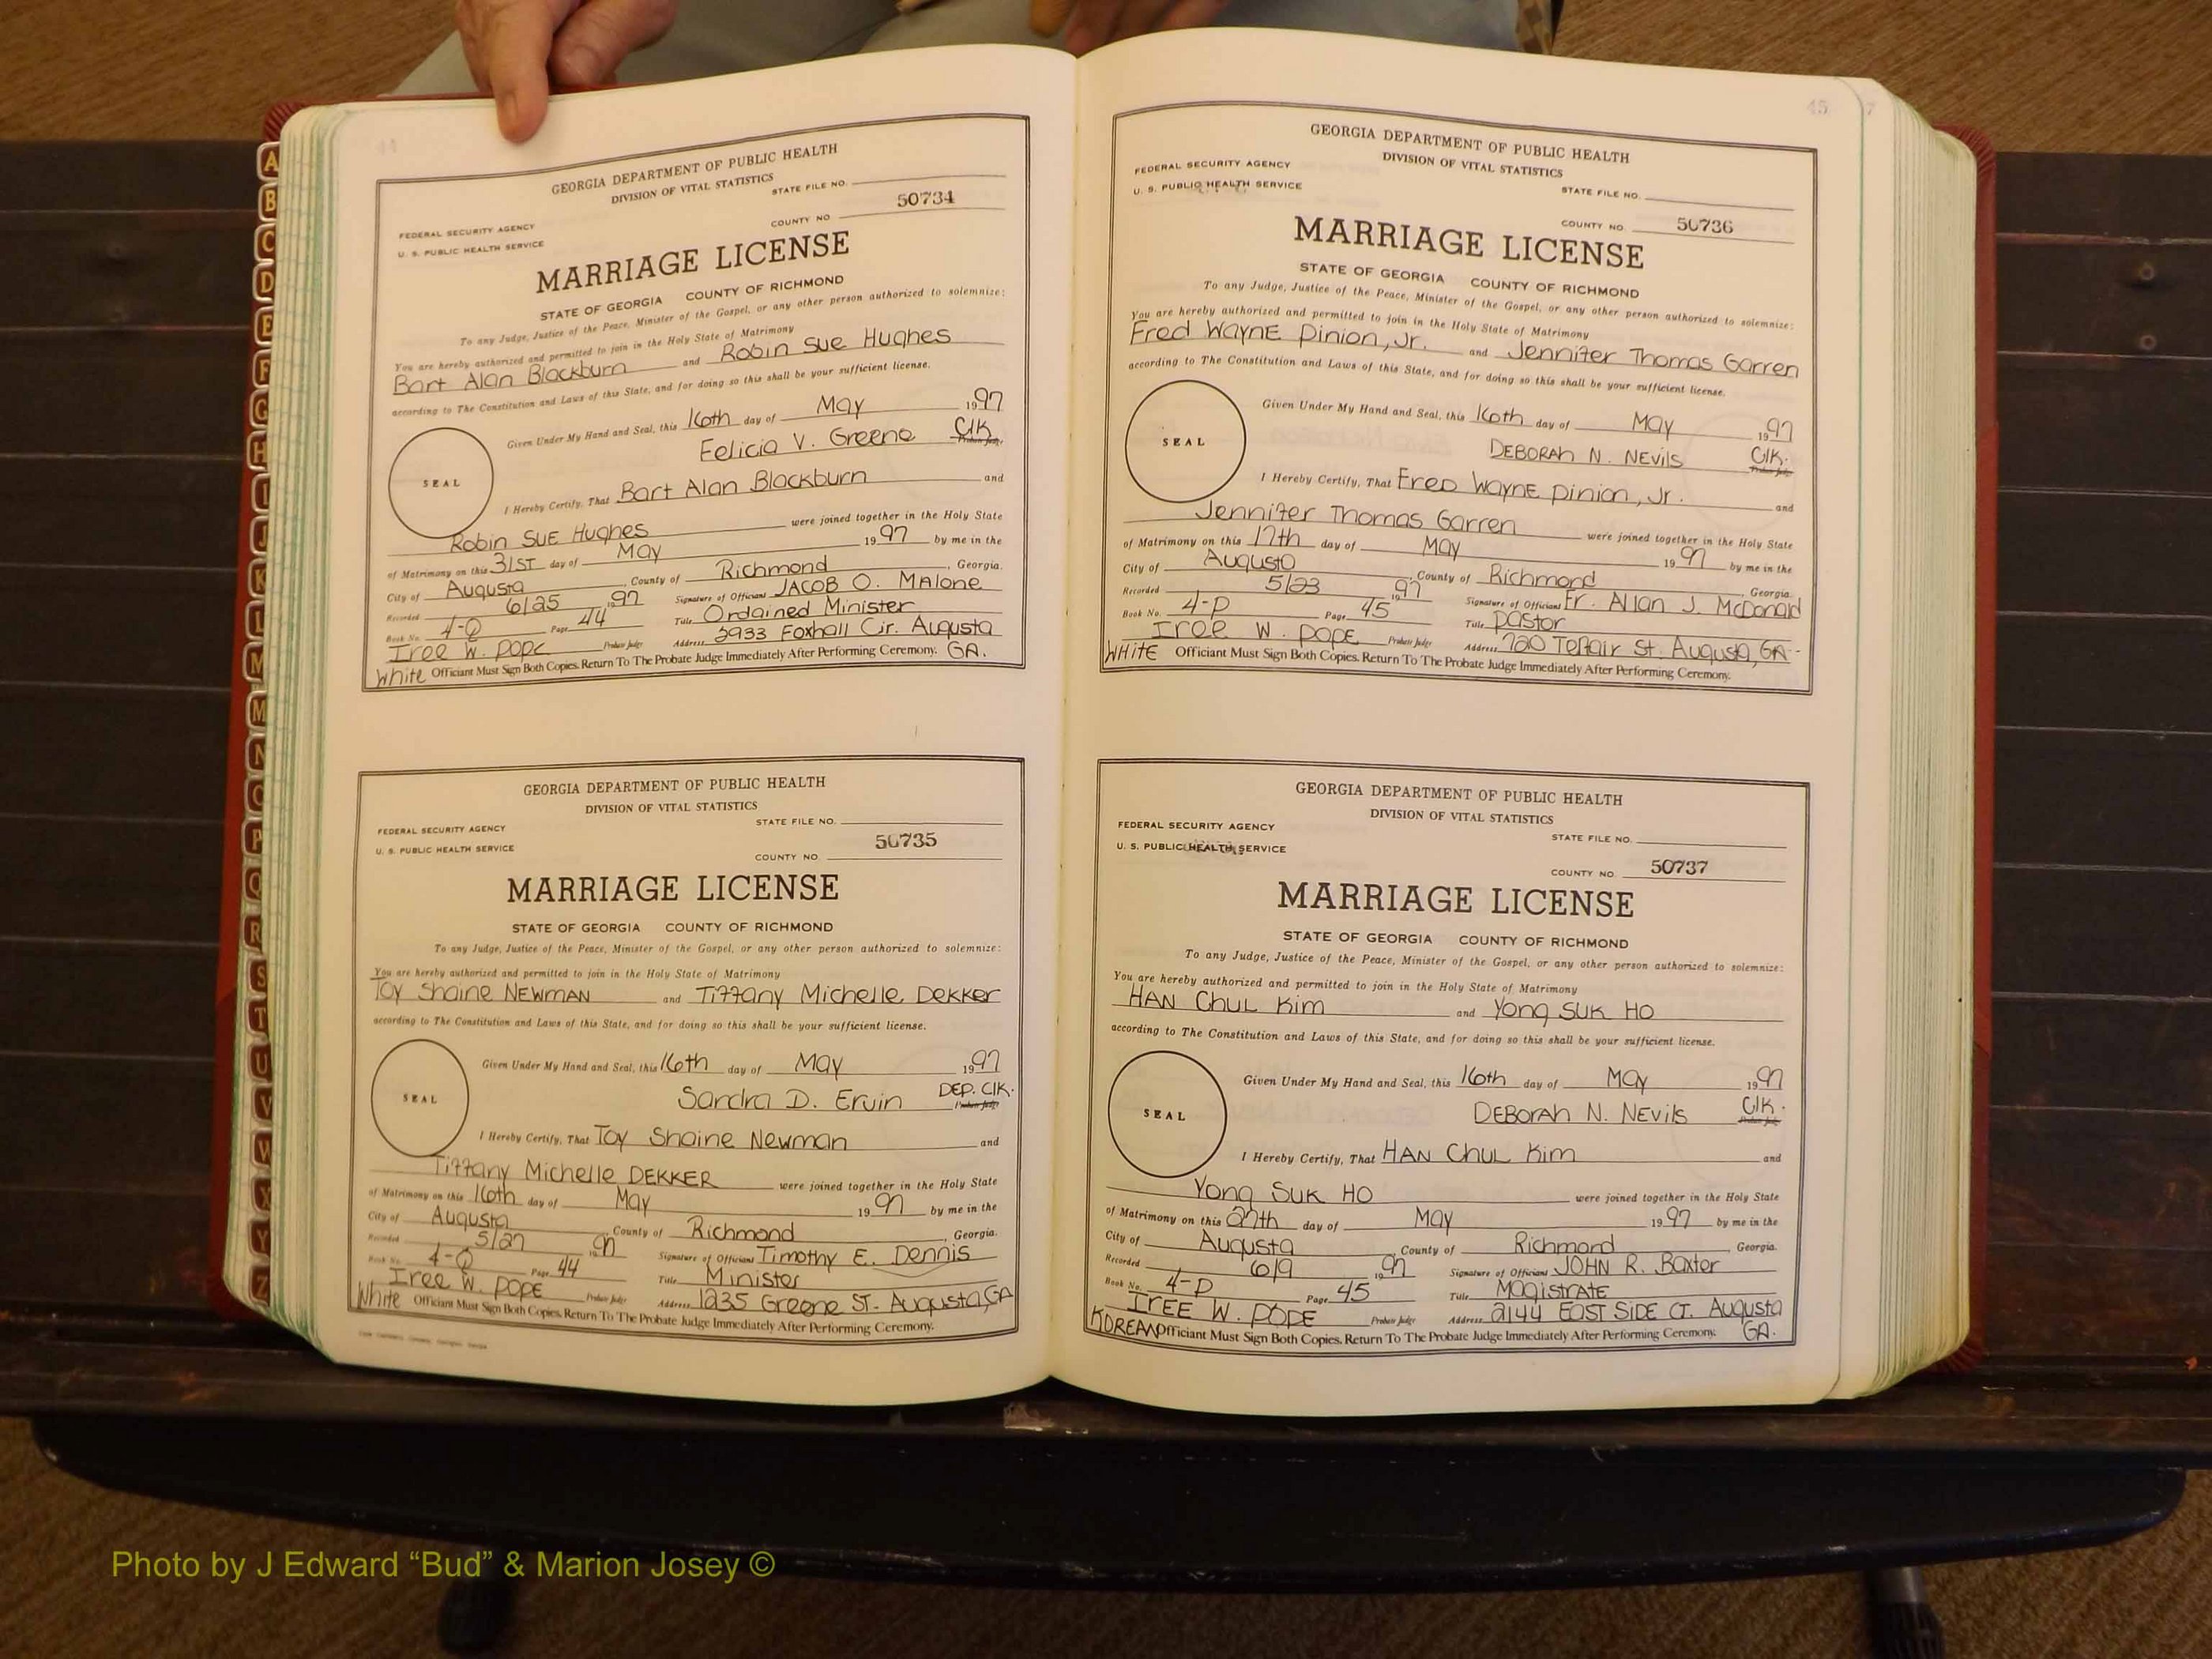 44
GEORGIA DEPARTMENT OF PUBLIC HEALTH
DIVISION OF VITAL STATISTICS
STATE FILE NO.
FEDERAL SECURITY AGENCY
U. S. PUBLIC HEALTH SERVICE
COUNTY NO 50734
MARRIAGE LICENSE
STATE OF GEORGIA COUNTY OF RICHMOND
To any Judge, Justice of the Peace, Minister of the Gospel, or any other person authorized to solemnize:
You are hereby authorized and permitted to join in the Holy State of Matrimony
Bart Alan Blackburn and Robin Sue Hughes
according to The Constitution and Laws of this State, and for doing so this shall be your sufficient license.
Given Under My Hand and Seal, this 16th day of May 1997
Felicia V. Greene Clk
Probate Judge
SEAL
I Hereby Certify, That Bart Alan Blackburn and
Robin SUE Hughes were joined together in the Holy State
of Matrimony on this 31ST day of May 1997 by me in the
City of Augusta, County of Richmond, Georgia.
Recorded 6/25 1997 Signature of Officiant JACOB O. MAlone
Book No. 4-Q Page 44 Title Ordained Minister
Iree W. POPE Probate Judge Address 2933 Foxhall Cir. Augusta
White Officiant Must Sign Both Copies. Return To The Probate Judge Immediately After Performing Ceremony. GA.
GEORGIA DEPARTMENT OF PUBLIC HEALTH
DIVISION OF VITAL STATISTICS
STATE FILE NO.
FEDERAL SECURITY AGENCY
U. S. PUBLIC HEALTH SERVICE
COUNTY NO. 50735
MARRIAGE LICENSE
STATE OF GEORGIA COUNTY OF RICHMOND
To any Judge, Justice of the Peace, Minister of the Gospel, or any other person authorized to solemnize:
You are hereby authorized and permitted to join in the Holy State of Matrimony
Toy Shaine NEWMAN and Tiffany Michelle DEKKER
according to The Constitution and Laws of this State, and for doing so this shall be your sufficient license.
Given Under My Hand and Seal, this 16th day of May 1997
Sandra D. Ervin DEP. Clk.
Probate Judge
SEAL
I Hereby Certify, That Toy Shaine Newman and
Tiffany Michelle DEKKER were joined together in the Holy State
of Matrimony on this 16th day of May 1997 by me in the
City of Augusta, County of Richmond, Georgia.
Recorded 5/27 1997 Signature of Officiant Timothy E. Dennis
Book No. 4-Q Page 44 Title Minister
Iree W. POPE Probate Judge Address 1235 Greene ST. Augusta, GA
White Officiant Must Sign Both Copies. Return To The Probate Judge Immediately After Performing Ceremony.
45 7
GEORGIA DEPARTMENT OF PUBLIC HEALTH
DIVISION OF VITAL STATISTICS
FEDERAL SECURITY AGENCY
U. S. PUBLIC HEALTH SERVICE
STATE FILE NO.
COUNTY NO. 50736
MARRIAGE LICENSE
STATE OF GEORGIA COUNTY OF RICHMOND
To any Judge, Justice of the Peace, Minister of the Gospel, or any other person authorized to solemnize:
You are hereby authorized and permitted to join in the Holy State of Matrimony
Fred WayNE Pinion, Jr. and Jennifer Thomas Garren
according to The Constitution and Laws of this State, and for doing so this shall be your sufficient license.
Given Under My Hand and Seal, this 16th day of May 1997
DEBORAH N. NEVils Clk.
Probate Judge
SEAL
I Hereby Certify, That Fred WayNE Pinion, Jr. and
Jennifer Thomas Garren were joined together in the Holy State
of Matrimony on this 17th day of May 1997 by me in the
City of Augusta, County of Richmond, Georgia.
Recorded 5/23 1997 Signature of Officiant Fr. Allan J. McDonald
Book No. 4-P Page 45 Title Pastor
Iree W. POPE Probate Judge Address 720 Telfair St. Augusta, GA-
WHitE Officiant Must Sign Both Copies. Return To The Probate Judge Immediately After Performing Ceremony.
GEORGIA DEPARTMENT OF PUBLIC HEALTH
DIVISION OF VITAL STATISTICS
FEDERAL SECURITY AGENCY
U. S. PUBLIC HEALTH SERVICE
STATE FILE NO.
COUNTY NO. 50737
MARRIAGE LICENSE
STATE OF GEORGIA COUNTY OF RICHMOND
To any Judge, Justice of the Peace, Minister of the Gospel, or any other person authorized to solemnize:
You are hereby authorized and permitted to join in the Holy State of Matrimony
HAN ChuL Kim and Yong SuK HO
according to The Constitution and Laws of this State, and for doing so this shall be your sufficient license.
Given Under My Hand and Seal, this 16th day of May 1997
DEBORAH N. NEVils Clk.
Probate Judge
SEAL
I Hereby Certify, That HAN ChuL Kim and
Yong SuK HO were joined together in the Holy State
of Matrimony on this 27th day of May 1997 by me in the
City of Augusta, County of Richmond, Georgia.
Recorded 6/9 1997 Signature of Officiant JOHN R. Baxter
Book No. 4-P Page 45 Title MagistRATE
IrEE W. POPE Probate Judge Address 2144 EAST SiDE CT. Augusta
KOREAN Officiant Must Sign Both Copies. Return To The Probate Judge Immediately After Performing Ceremony. GA.
A
B
C
D
E
F
G
H
I
J
K
L
M
M
N
O
P
Q
R
S
T
U
V
W
X
Y
Z
Photo by J Edward “Bud” & Marion Josey ©